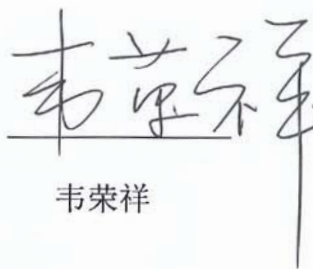 韦荣祥
韦荣祥